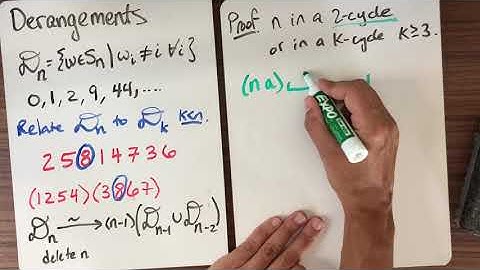 Derangements
𝒟n = {w∈Sn | wi ≠ i ∀i}
0, 1, 2, 9, 44, ....
Relate 𝒟n to 𝒟k k<n.
2 5 8 1 4 7 3 6
(1254)(3867)
𝒟n ~→ (n-1)(𝒟n-1 ∪ 𝒟n-2)
delete n
Proof: n in a 2-cycle
or in a k-cycle k≥3.
(n a)
EXPO